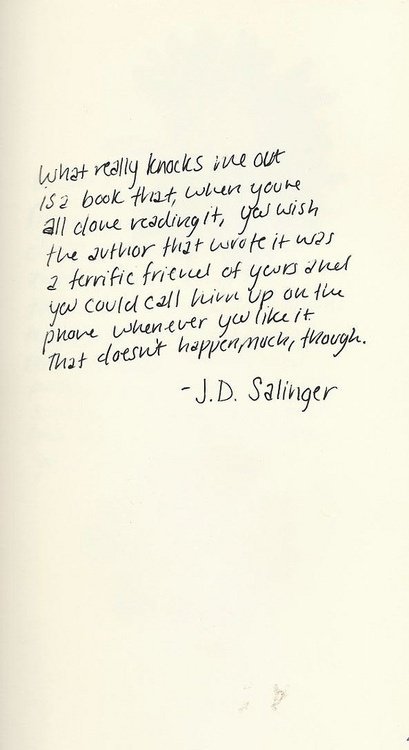 What really knocks me out
is a book that, when you're
all done reading it, you wish
the author that wrote it was
a terrific friend of yours and
you could call him up on the
phone whenever you like it
That doesn't happen much, though.
- J.D. Salinger